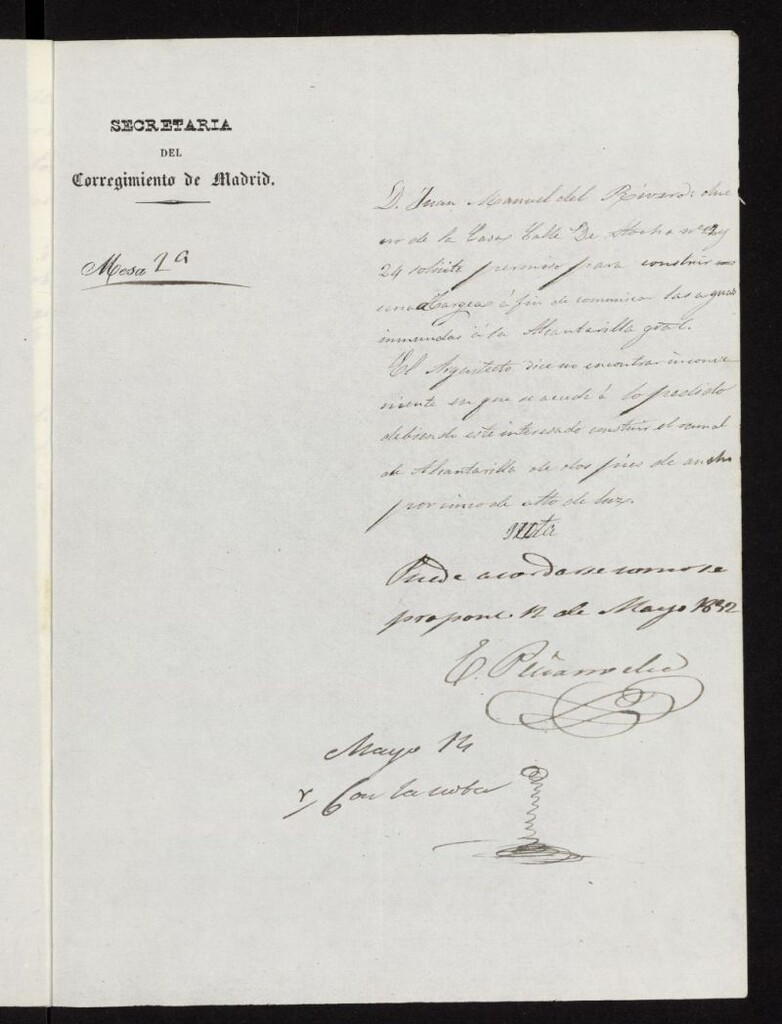 SECRETARIA
DEL
Corregimiento de Madrid.
Mesa 2ª
D. Juan Manuel del due
no de la Casa Calle De Atocha nº 22 y
24 solicita permiso para construir
una Targea á fin de comunicar las aguas
inmundas á la Alcantarilla gral.
El Arquitecto dice no encontrar inconve
niente en que se acceda á lo pedido
debiendo este interesado construir el ramal
de Alcantarilla de dos pies de ancho
por cinco de alto de luz.
Nota
Puede acordarse como se
propone. 12 de Mayo 1852
E.
Mayo 14
Con la nota